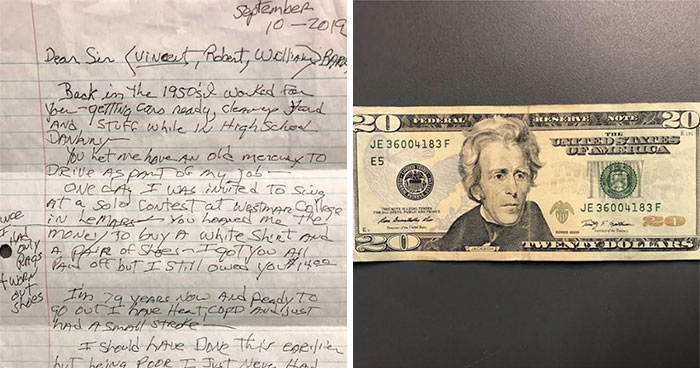 September
10-2019
Dear Sir (Vincent, Robert, William)
Back in the 1950's I worked for
You - getting cars ready, cleanup Yard
AND STUFF while in High School
You Let me HAVE AN old mercury TO
DRIVE AS PART OF my job -
ONE DAY I WAS invited TO Sing
AT A Solo Contest AT WESTMAR College
in LeMARS - You Loaned me The
money TO buy A white Shirt AND
A PAIR OF Shoes - I got You All
PAID off but I STill owed You $14.00
I
ONLY
RAGS
+ WORN
OUT
SHOES
I'm 79 years Now AND Ready To
go out I HAVE Heart, COPD AND just
HAD A Small STroke -
I Should HAVE Done This earlier
but being Poor I JUST Never HAD
20 FEDERAL RESERVE NOTE 20
THE
UNITED STATES
OF AMERICA
JE 36004183 F
E5
THIS NOTE IS LEGAL TENDER
FOR ALL DEBTS, PUBLIC AND PRIVATE
JE 36004183 F
20
20 TWENTY DOLLARS